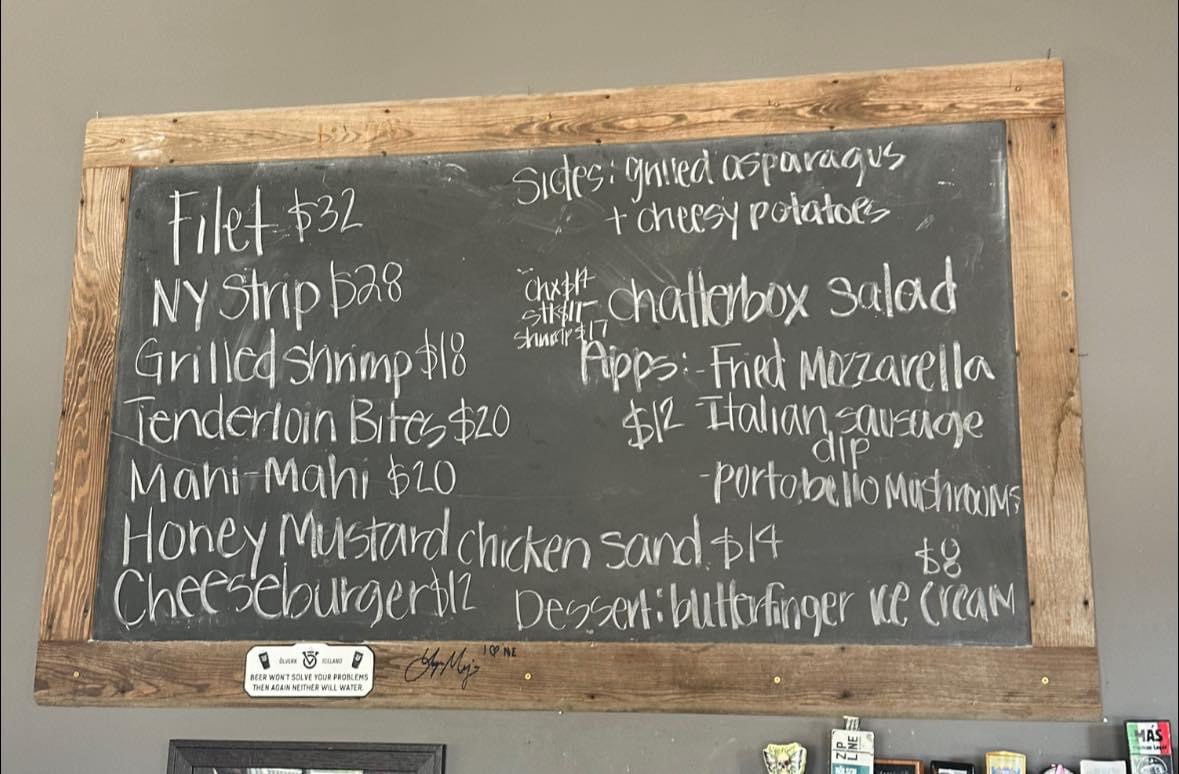 Filet $32
NY Strip $28
Grilled Shrimp $18
Tenderloin Bites $20
Mahi-Mahi $20
Honey Mustard chicken sand. $14
Cheeseburger $12
Sides: grilled asparagus
+ cheesy potatoes
chx $14
stk $15
shrimp $17
chatterbox salad
Apps: - Fried Mozzarella
$12 - Italian sausage
dip
- portobello Mushrooms
$8
Dessert: butterfinger ice cream
ÖLVERK ICELAND
BEER WON'T SOLVE YOUR PROBLEMS
THEN AGAIN NEITHER WILL WATER.
I ♡ NE
ZIP
LINE
MÁS